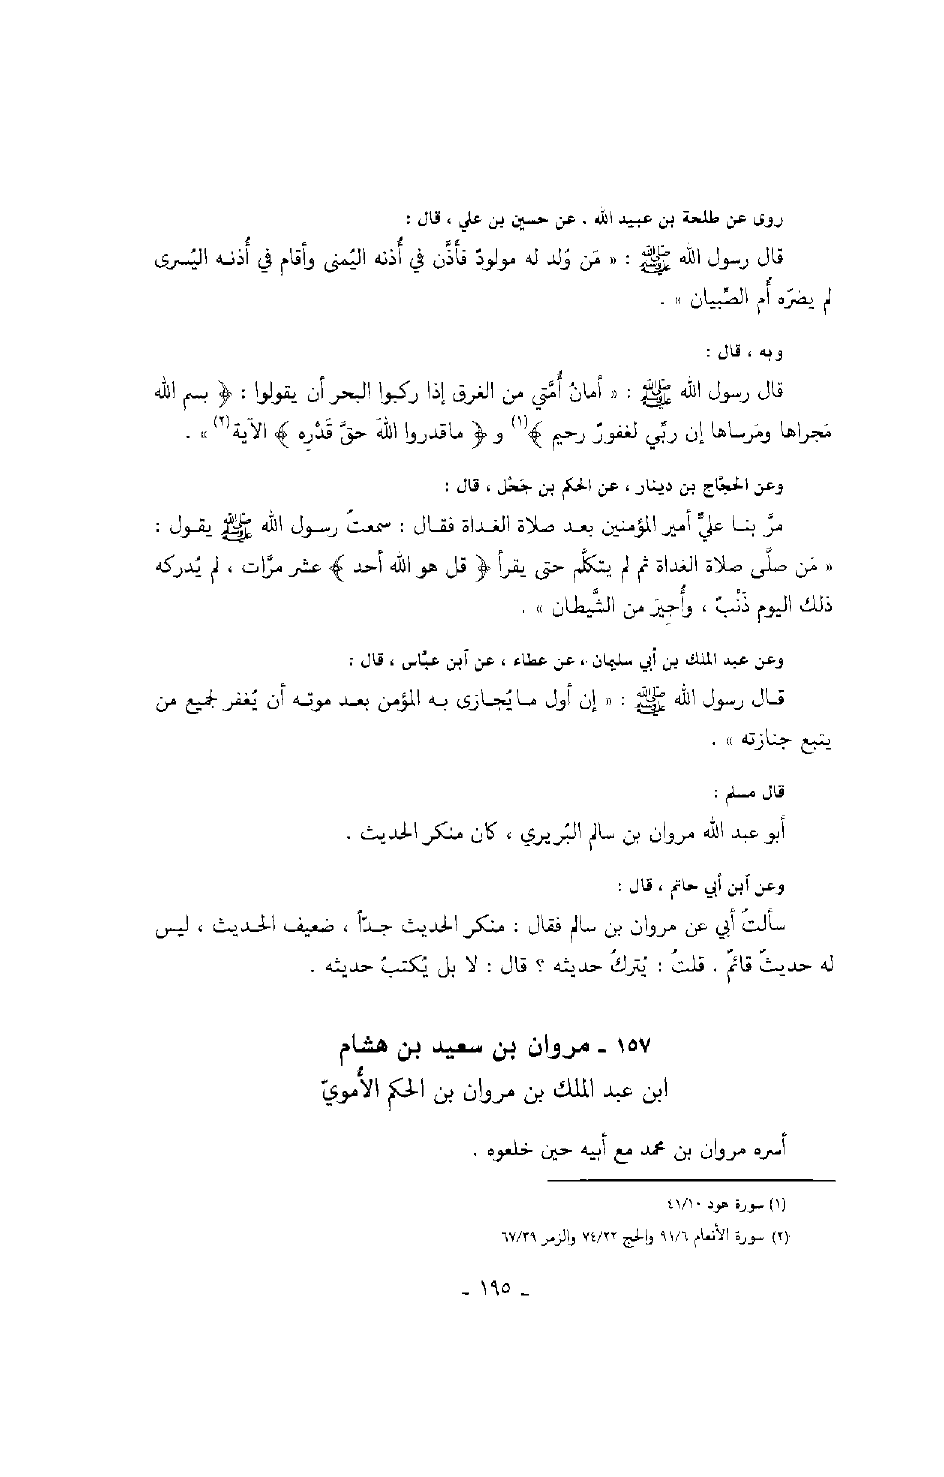 روى عن طلحة بن عبيد الله . عن حسين بن علي ، قال :
قال رسول الله ﷺ : « مَن وُلد له مولودٌ فأَذَّن في أُذنه اليُمنى وأقام في أُذنـه اليُسرى
لم يضرّه أُم الصِّبيان » .
وبه ، قال :
قال رسول الله ﷺ : « أمانُ أُمَّتي من الغرق إذا ركبوا البحر أن يقولوا : ﴿ بسم الله
مَجراها ومَرساها إن ربِّي لغفورٌ رحيم ﴾(١) و ﴿ ماقدروا اللهَ حقَّ قَدْرِه ﴾ الآية(٢) » .
وعن الحجّاج بن دينار ، عن الحكم بن جَحْل ، قال :
مرَّ بنـا عليٌّ أمير المؤمنين بعـد صلاة الغـداة فقـال : سمعتُ رسـول الله ﷺ يقـول :
« مَن صلَّى صلاة الغداة ثم لم يتكلَّم حتى يقرأ ﴿ قل هو الله أحد ﴾ عشر مرَّات ، لم يُدركه
ذلك اليوم ذَنْبٌ ، وأُجِيرَ من الشَّيطان » .
وعن عبد الملك بن أبي سليمان ، عن عطاء ، عن آبن عبّاس ، قال :
قـال رسول الله ﷺ : « إن أول مـايُجـازى بـه المؤمن بعـد موتـه أن يُغفر لجميع من
يتبع جنازته » .
قال مسلم :
أبو عبد الله مروان بن سالم البُريري ، كان منكر الحديث .
وعن آبن أبي حاتم ، قال :
سألتُ أبي عن مروان بن سالم فقال : منكر الحديث جـدّاً ، ضعيف الحـديث ، ليس
له حديثٌ قائمٌ . قلتُ : يُتركُ حديثه ؟ قال : لا بل يُكتبُ حديثه .
١٥٧ ـ مروان بن سعيد بن هشام
ابن عبد الملك بن مروان بن الحكم الأمويّ
أسره مروان بن محمد مع أبيه حين خلعوه .
(١) سورة هود ٤١/١٠
(٢) سورة الأنعام ٩١/٦ والحج ٧٤/٢٢ والزمر ٦٧/٣٩
ـ ١٩٥ ـ